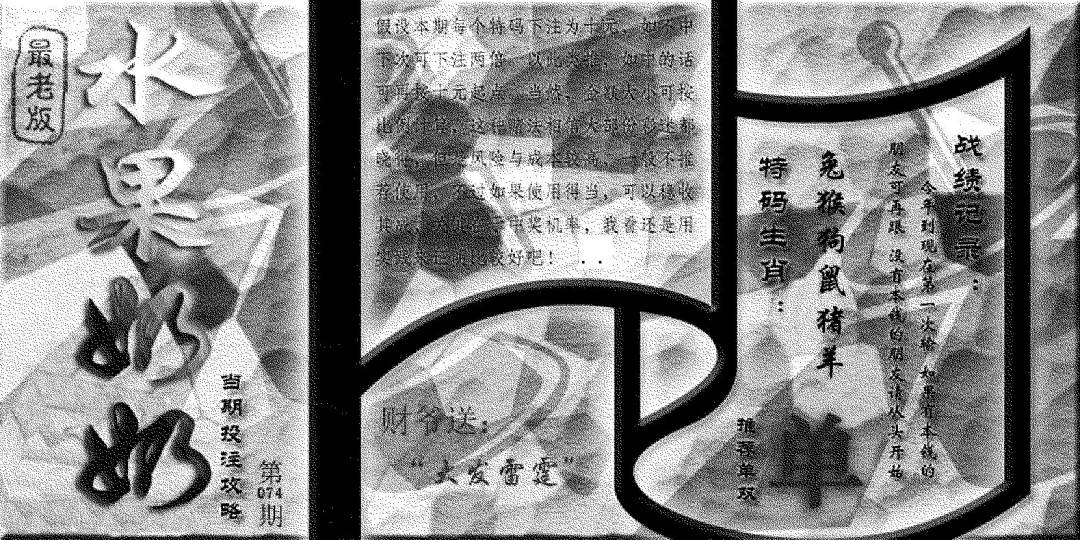 最老版
水果奶奶
当期投注攻略
第074期
假设本期每个特码下注为十元，如不中
下次可下注两倍，以此类推，如中的话
可再按十元起点，当然，金额大小可按
比例计算，这种赌法相信大部份彩迷都
晓得，但是风险与成本较高，一般不推
荐使用，不过如果使用得当，可以稳收
中奖机率，我看还是用
比较好吧！ ..
财爷送：
“大发雷霆”
特码生肖：
兔猴狗鼠猪羊
推荐单双
单
战绩记录：
今年到现在第一次输 如果有本钱的
朋友可再跟 没有本钱的朋友请从头开始